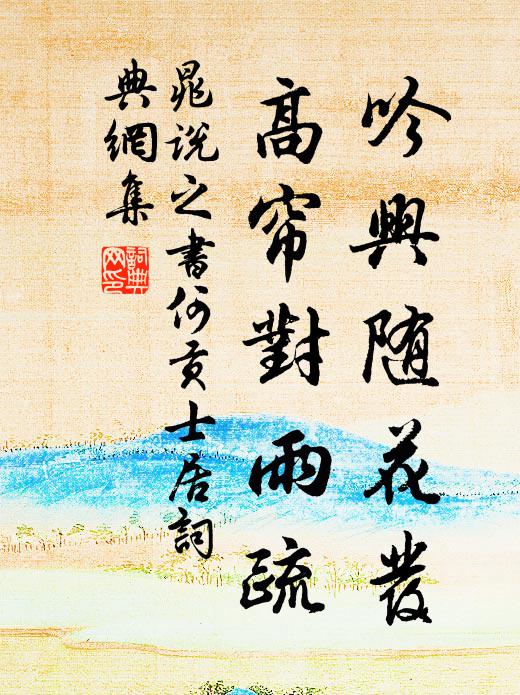 吟興隨花發
高帘對雨疏
晁說之書何貢士居詞
典網集
詞典
网印